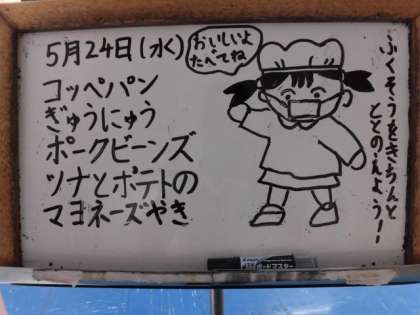 5月24日(水)
コッペパン
ぎゅうにゅう
ポークビーンズ
ツナとポテトの
マヨネーズやき
おいしいよ
たべてね
ふくそうをきちんと
ととのえよう!!
ボードマスター